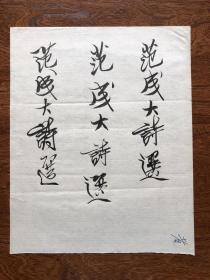 范成大詩選
范成大詩選
范成大詩選